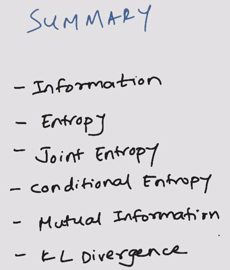 SUMMARY
- Information
- Entropy
- Joint Entropy
- Conditional Entropy
- Mutual Information
- KL Divergence